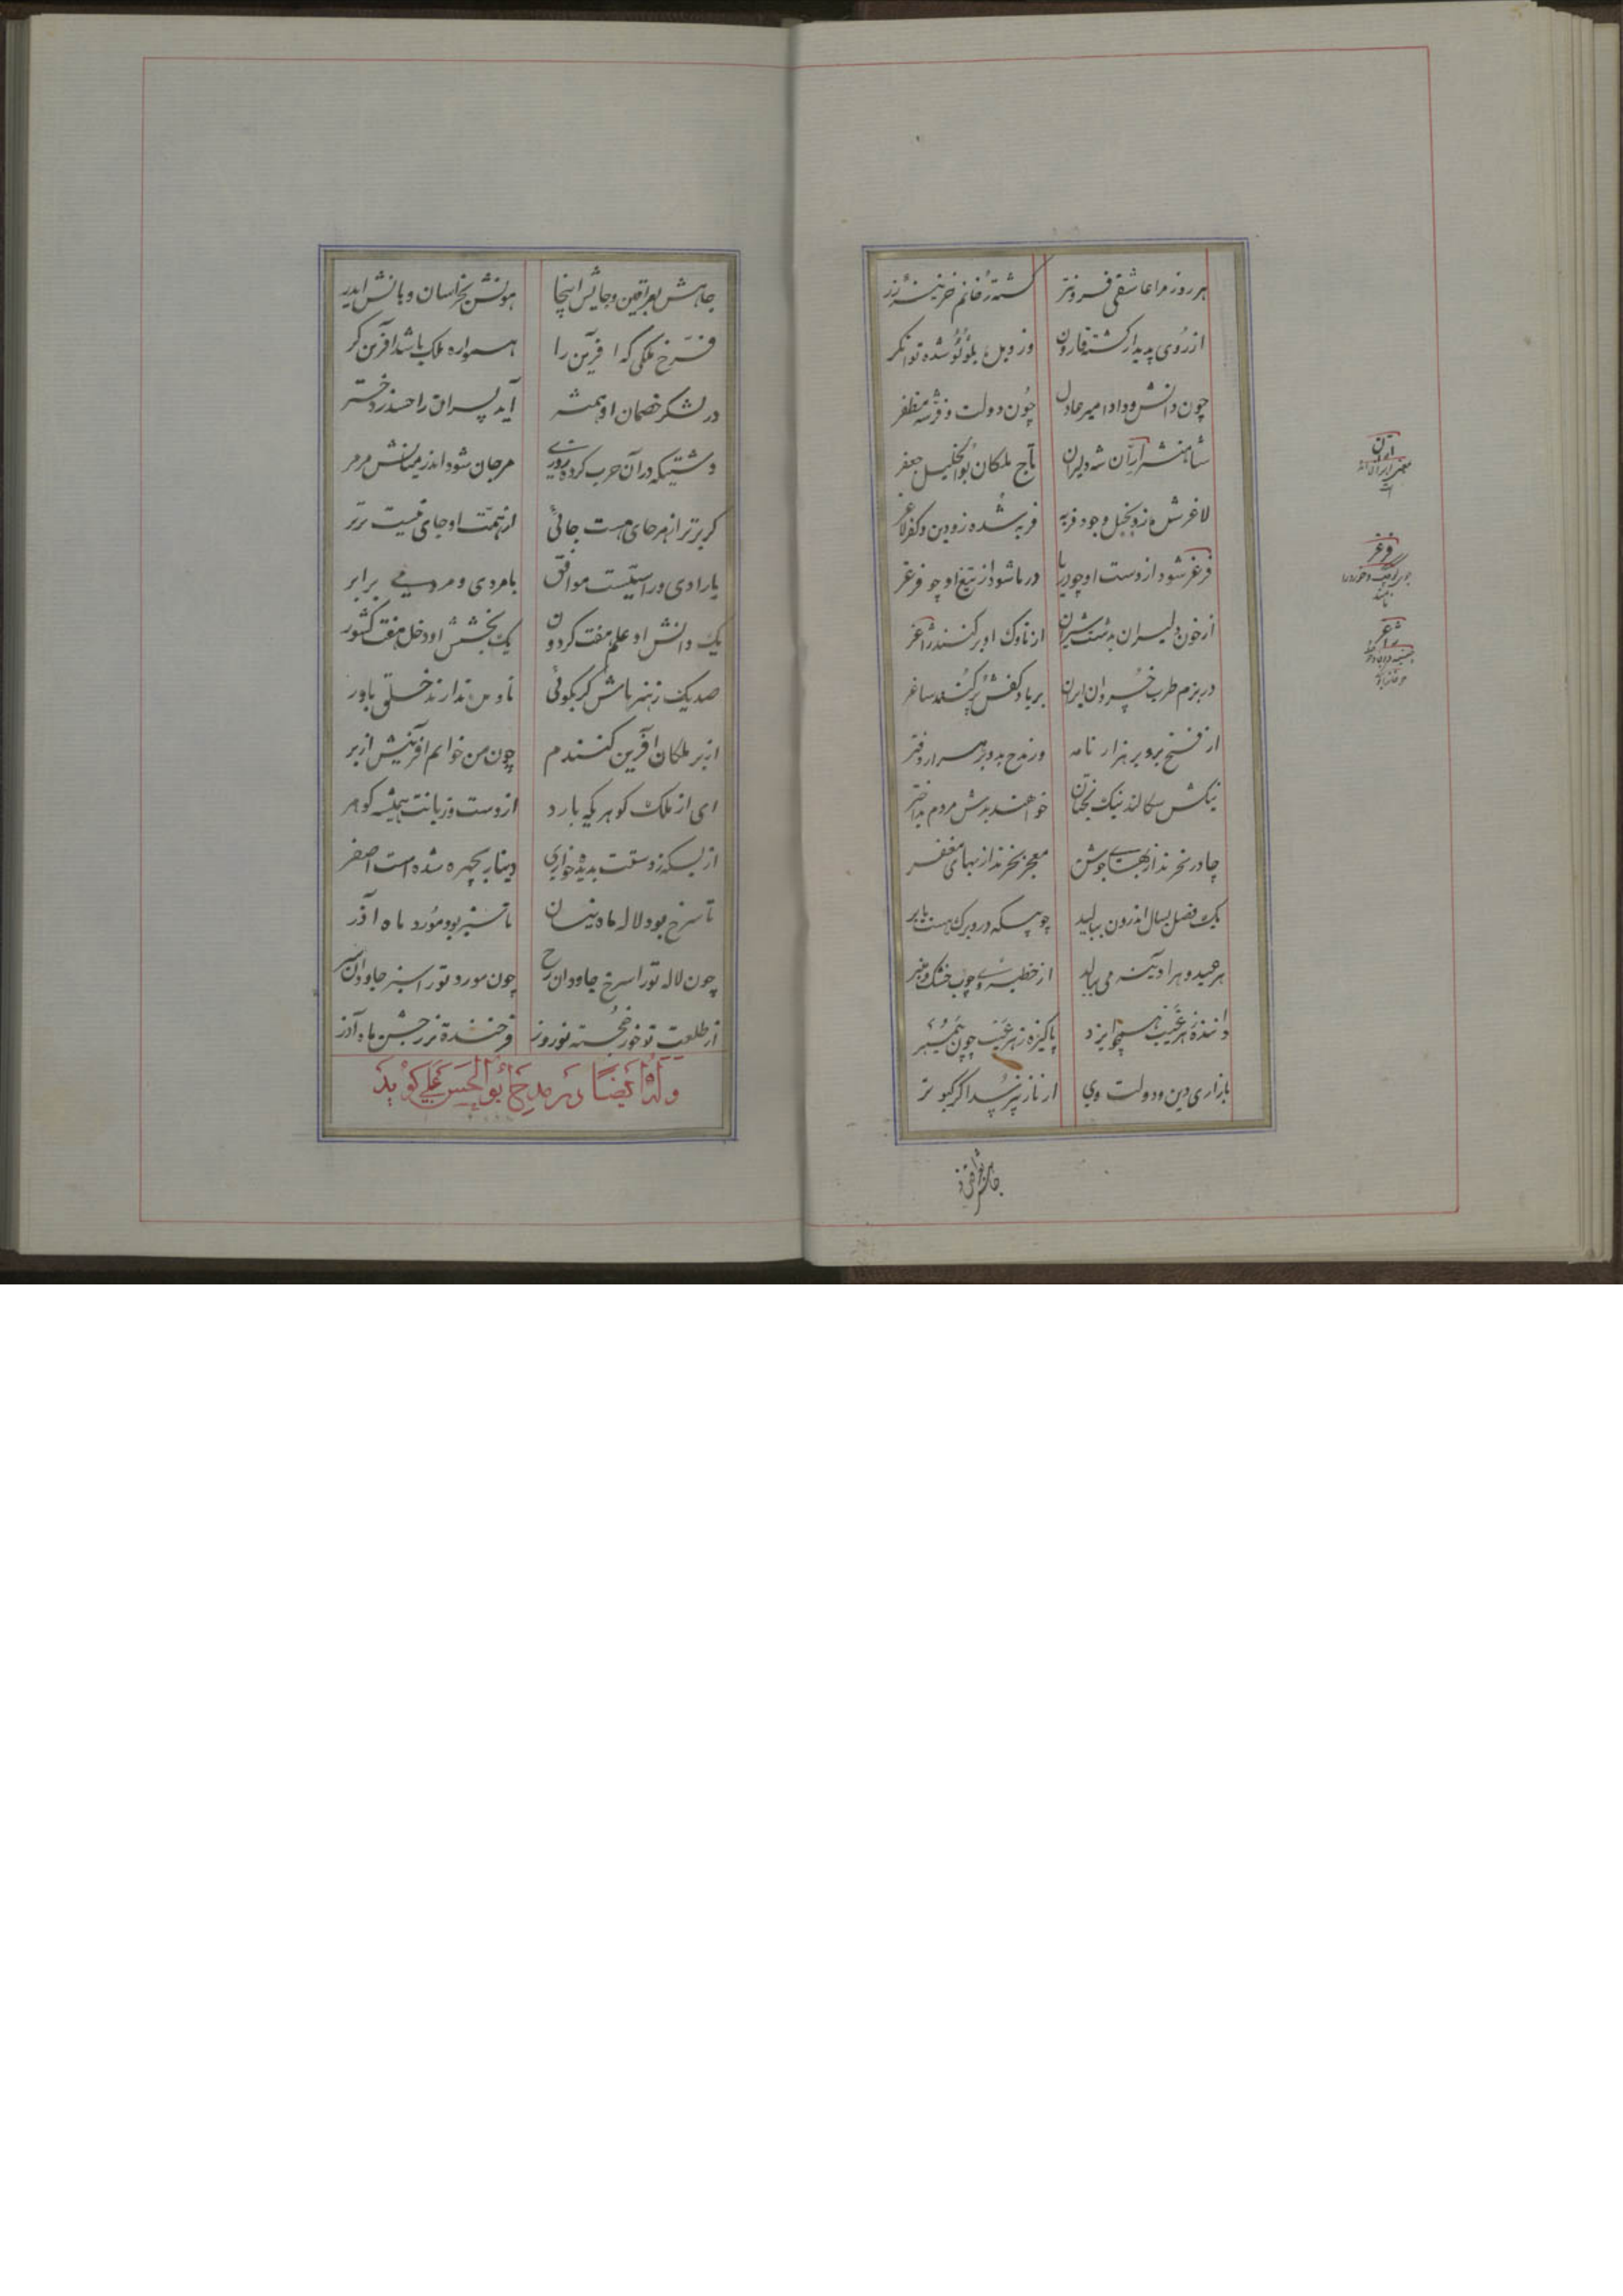 هر روز مرا عاشقی فزونتر گشته رخانم خزینهٔ زر
از روی پدیدار گشته قارون وز وبل بلؤلؤ شده توانگر
چون دانش و داد امیر عادل چون دولت و فرّ شه مظفر
شاهنشه آرّان شه دلیران تاج ملکان بوالخلیل جعفر
لاغر شده زو بخل و جود فربه فربه شده زو دین و کفر لاغر
فرغر شود از دست او چو دریا دریا شود از تیغ او چو فرغر
از خون دلیران بدشت شیران از ناوک او پر کنند ژاغر
در بزم طرب خسروان ایران بر یاد کفش پر کنند ساغر
از فتح برو بر هزار نامه وز مدح بدو بر هزار دفتر
نیکش سگالند نیک بختان خواهند بدش مردم بداختر
چادر نخرند از بهای جوشن معجر نخرند از بهای مغفر
یک فصل بسال اندرون ببالد چوبیکه درو برگ هست یا بر
هر عید و هر آدینه می ببالد از خطبهٔ وی چوب خشک منبر
دانندهٔ هر غیب همچو ایزد پاکیزه ز هر عیب چون پیمبر
بازاری دین و دولت وی از ناز نپرسد اگر کبوتر
ارّان
فرغر
ژاغر
جاهش بعراقین و جایش اینجا هونش بخراسان و بانش ایدر
فرّخ ملکی که آفرین را همواره ملک باشد آفرین گر
در لشکر خصمان او همیشه آید پسران را حسد ز دختر
دشتیکه در آن حرب کرد روزی مرجان شود اندر میانش مرمر
گر برتر از هر جای هست جائی از همت او جای نیست برتر
با رادی و راستیست موافق با مردی و مردمی برابر
یک دانش او علم هفت گردون یک بخشش او دخل هفت کشور
صد یک ز هنرهاش گر بگوئی نادیده ندارند خلق باور
از بر ملکان آفرین کنندم چون من خوانم آفرینش از بر
ای از ملک گوهریکه بارد از دست و زبانت همیشه گوهر
از بسکه ز دستت بدیده خواری دینار بچهره شده است اصفر
تا سرخ بود لاله ماه نیسان تا سبز بود مورد ماه آذر
چون لاله تو را سرخ جاودان رخ چون مورد تو را سبز جاودان سر
از طلعت تو خور خجسته نوروز فرخنده تر از جشن ماه آذر
وله ایضاً در مدح ابوالحسن علی گوید
جاهش بعراقین